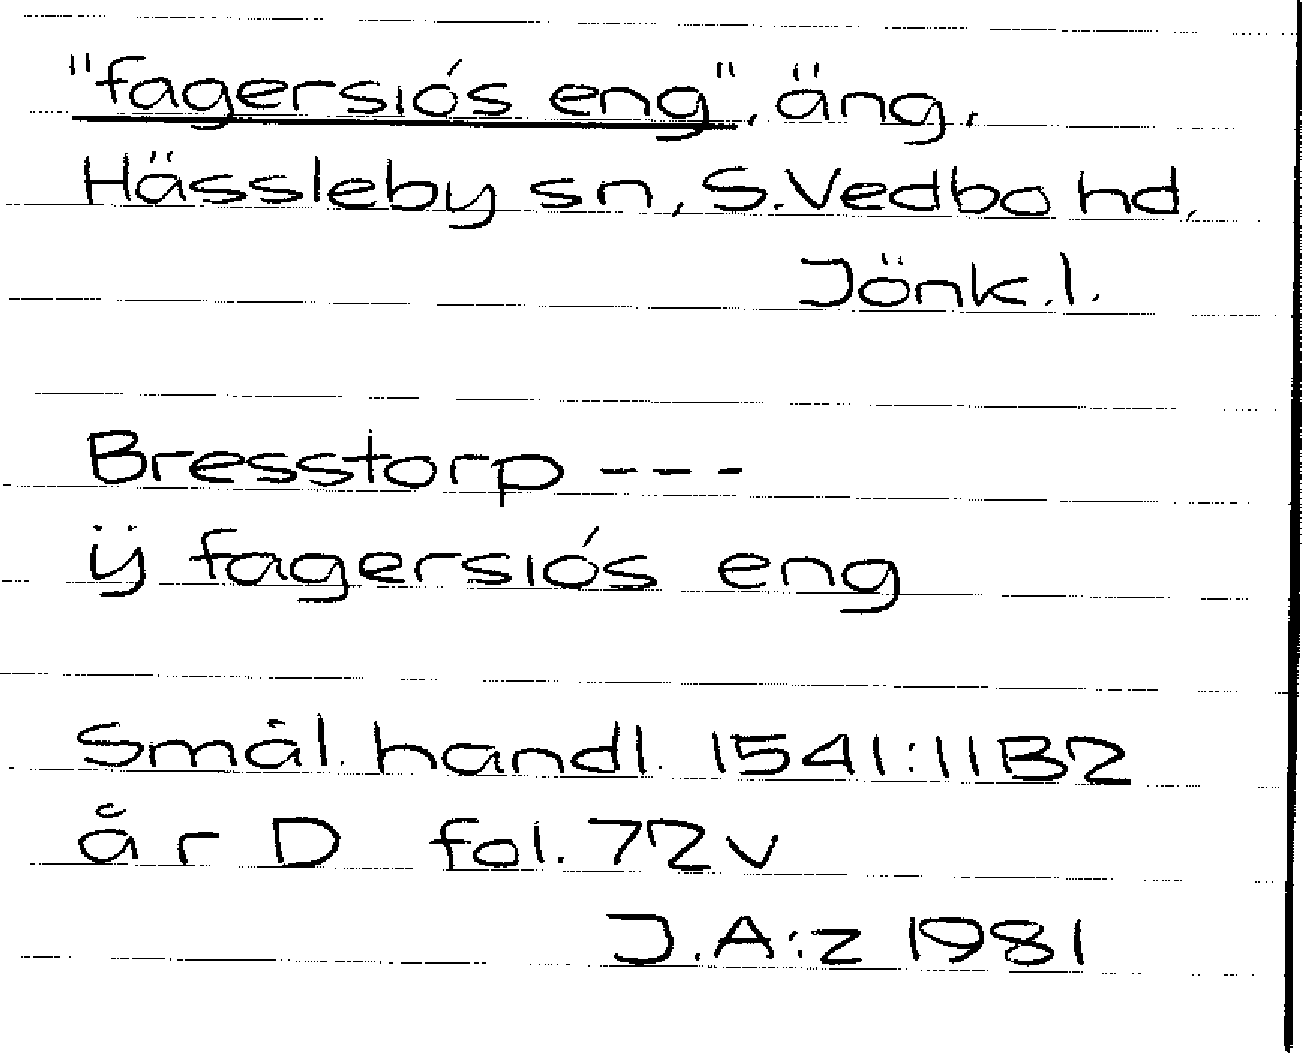 "fagersiós eng", äng,
Hässleby sn, S.Vedbo hd,
Jönk.l.
Bresstorp ---
ij fagersiós eng
Smål. handl. 1541:11B2
år D fol. 72v
J.A:z 1981